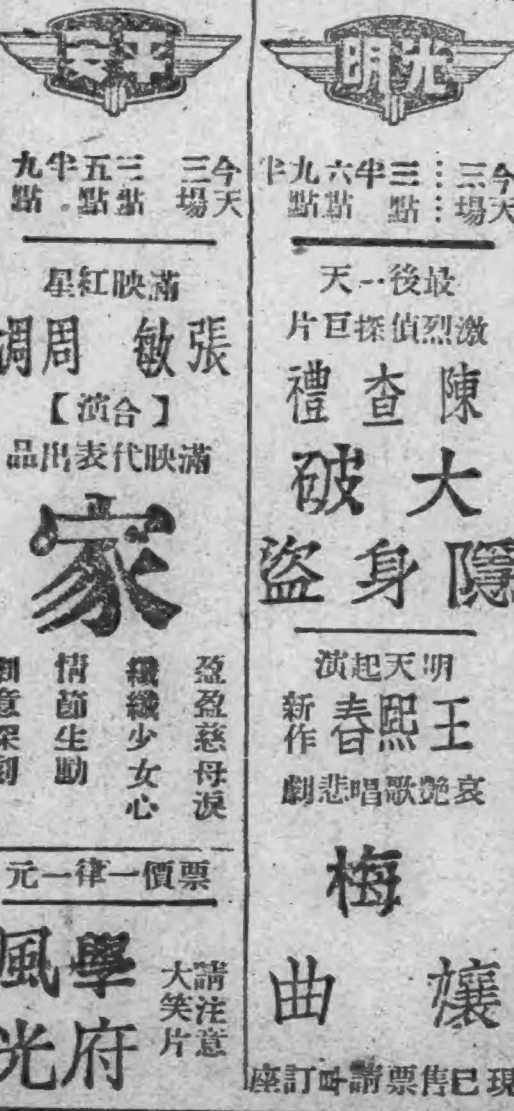 光明
今天三場
三點半
六點
九點半
最後一天
激烈偵探巨片
陳查禮
大破
隱身盜
明天起演
王熙春
新作
哀艷歌唱悲劇
梅
孃曲
現已售票請時訂座
平安
今天三場
三點
五點半
九點
滿映紅星
張敏 周凋
【合演】
滿映代表出品
家
盈盈慈母淚
纖纖少女心
情節生動
意深刻
票價一律一元
請注意
大笑片
學府
風光